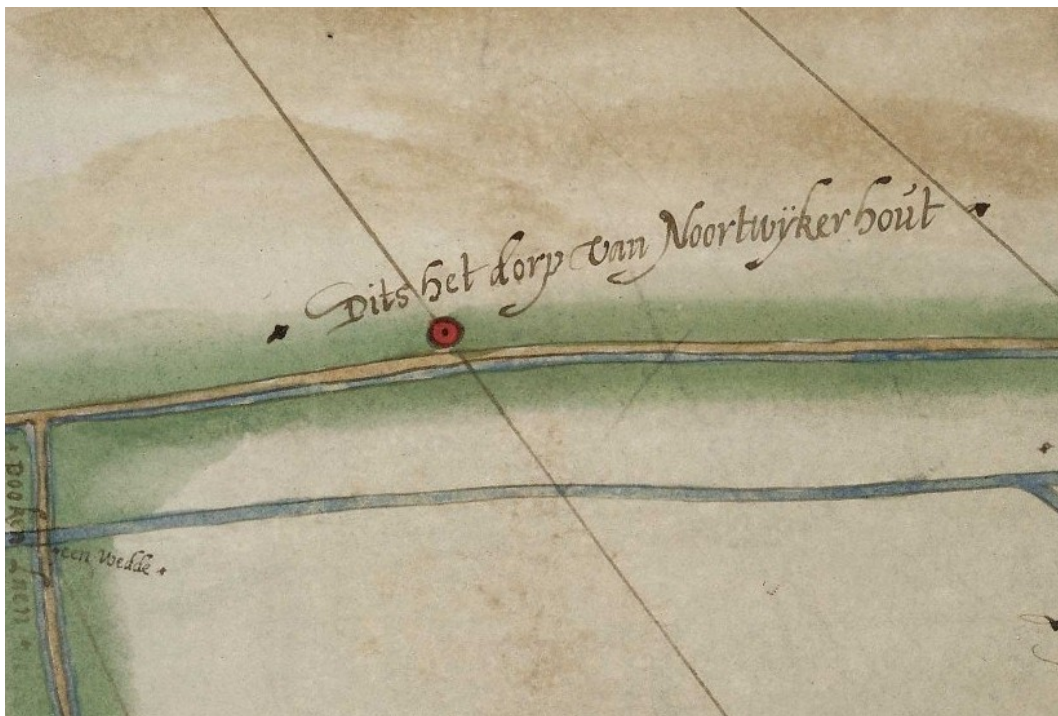 Dits het dorp van Noortwÿkerhoút
een wedde